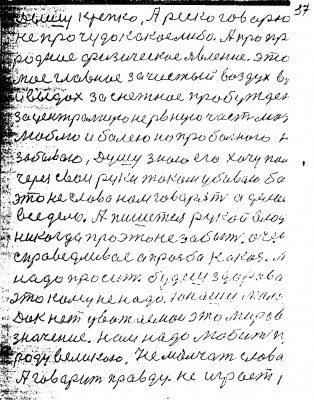 37
пишу крепко, А речь говорю
не про чудо какое либо. А про пр
родное физическое явление. это
мое главное за чистый воздух в
и выдох за снежное пробужден
за центральную нервную часть мозг
люблю и болею но про больного н
забываю, Душу знаю его хочу пом
через свои руки током убиваю бо
это не слова нам говарят а дела
все дело. А пишется рукой влад
никогда про это не забыть. очен
справедливое а прозьба какая. М
надо просить будеш здорова
это кому не надо. юнаши мило
Док нет уважаемой это миров
значение. нам надо любить п
роду великою. Не молчат слова
А говарит правду. не играет,